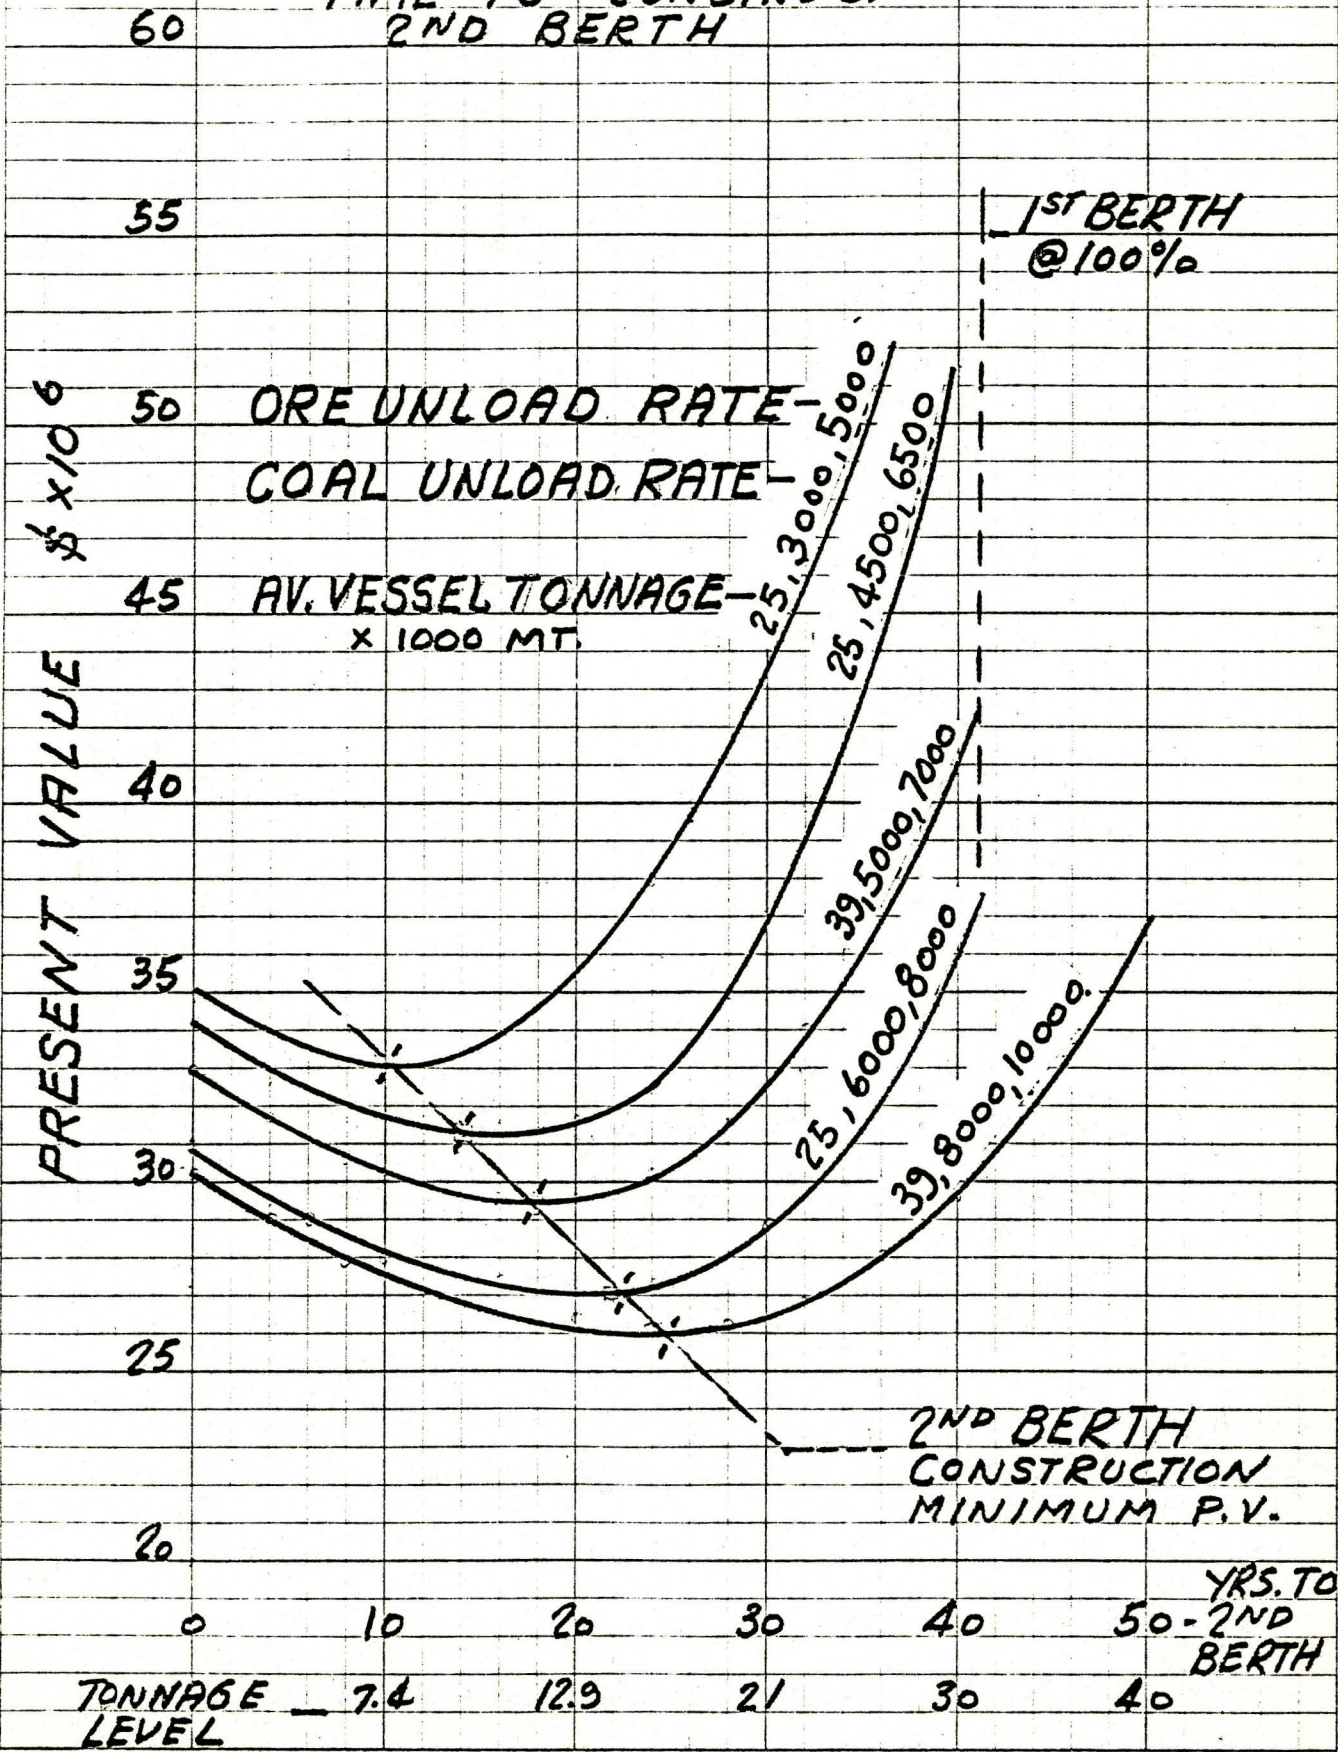 2ND BERTH
60
55
50
45
40
35
30
25
20
PRESENT VALUE $ x10 6
1ST BERTH
@ 100%
ORE UNLOAD RATE-
COAL UNLOAD RATE-
AV. VESSEL TONNAGE-
x 1000 MT.
25, 3000, 5000
25, 4500, 6500
39, 5000, 7000
25, 6000, 8000
39, 8000, 10000
2ND BERTH
CONSTRUCTION
MINIMUM P.V.
0 10 20 30 40 50 - YRS. TO
2ND
BERTH
TONNAGE
LEVEL
- 7.4 12.9 21 30 40